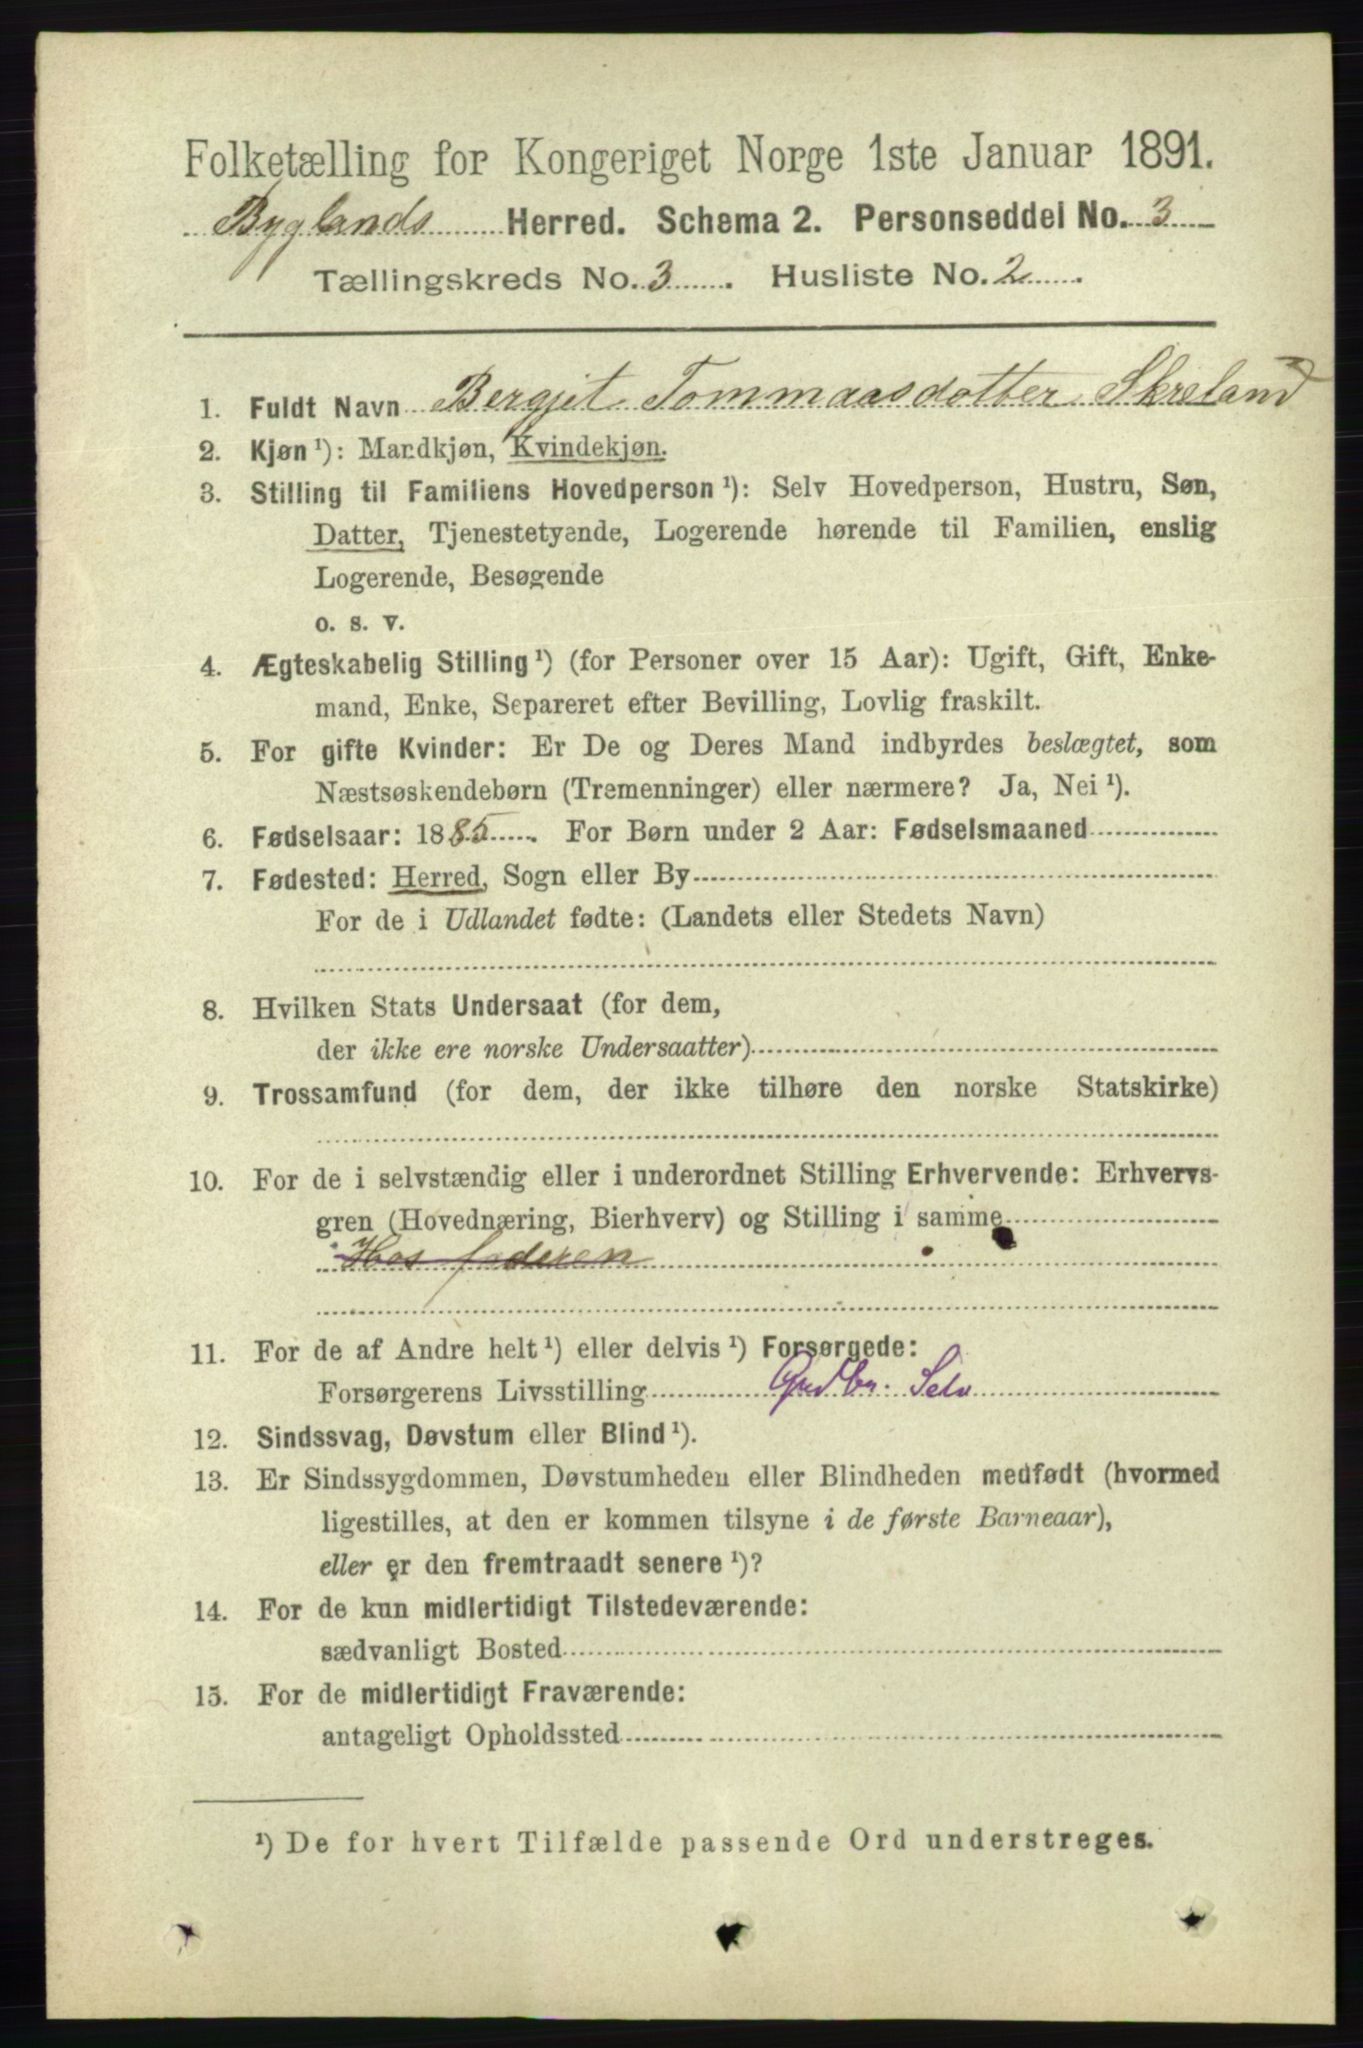 Folketælling for Kongeriget Norge 1ste Januar 1891.
Byglands Herred. Schema 2. Personseddel No. 3
Tællingskreds No. 3. Husliste No. 2.
1. Fuldt Navn Bergjet Tommaasdotter Skreland
2. Kjøn ¹): Mandkjøn, Kvindekjøn.
3. Stilling til Familiens Hovedperson ¹): Selv Hovedperson, Hustru, Søn,
Datter, Tjenestetyende, Logerende hørende til Familien, enslig
Logerende, Besøgende
o. s. v.
4. Ægteskabelig Stilling ¹) (for Personer over 15 Aar): Ugift, Gift, Enke-
mand, Enke, Separeret efter Bevilling, Lovlig fraskilt.
5. For gifte Kvinder: Er De og Deres Mand indbyrdes beslægtet, som
Næstsøskendebørn (Tremenninger) eller nærmere? Ja, Nei ¹).
6. Fødselsaar: 1885. For Børn under 2 Aar: Fødselsmaaned
7. Fødested: Herred, Sogn eller By
For de i Udlandet fødte: (Landets eller Stedets Navn)
8. Hvilken Stats Undersaat (for dem,
der ikke ere norske Undersaatter)
9. Trossamfund (for dem, der ikke tilhøre den norske Statskirke)
10. For de i selvstændig eller i underordnet Stilling Erhvervende: Erhvervs-
gren (Hovednæring, Bierhverv) og Stilling i samme
Hos faderen
11. For de af Andre helt ¹) eller delvis ¹) Forsørgede:
Forsørgerens Livsstilling Grdbr. Selv
12. Sindssvag, Døvstum eller Blind ¹).
13. Er Sindssygdommen, Døvstumheden eller Blindheden medfødt (hvormed
ligestilles, at den er kommen tilsyne i de første Barneaar),
eller er den fremtraadt senere ¹)?
14. For de kun midlertidigt Tilstedeværende:
sædvanligt Bosted
15. For de midlertidigt Fraværende:
antageligt Opholdssted
¹) De for hvert Tilfælde passende Ord understreges.